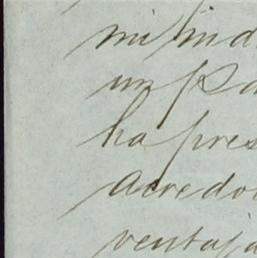 mi ind
un pa
ha pres
acredo
ventaja